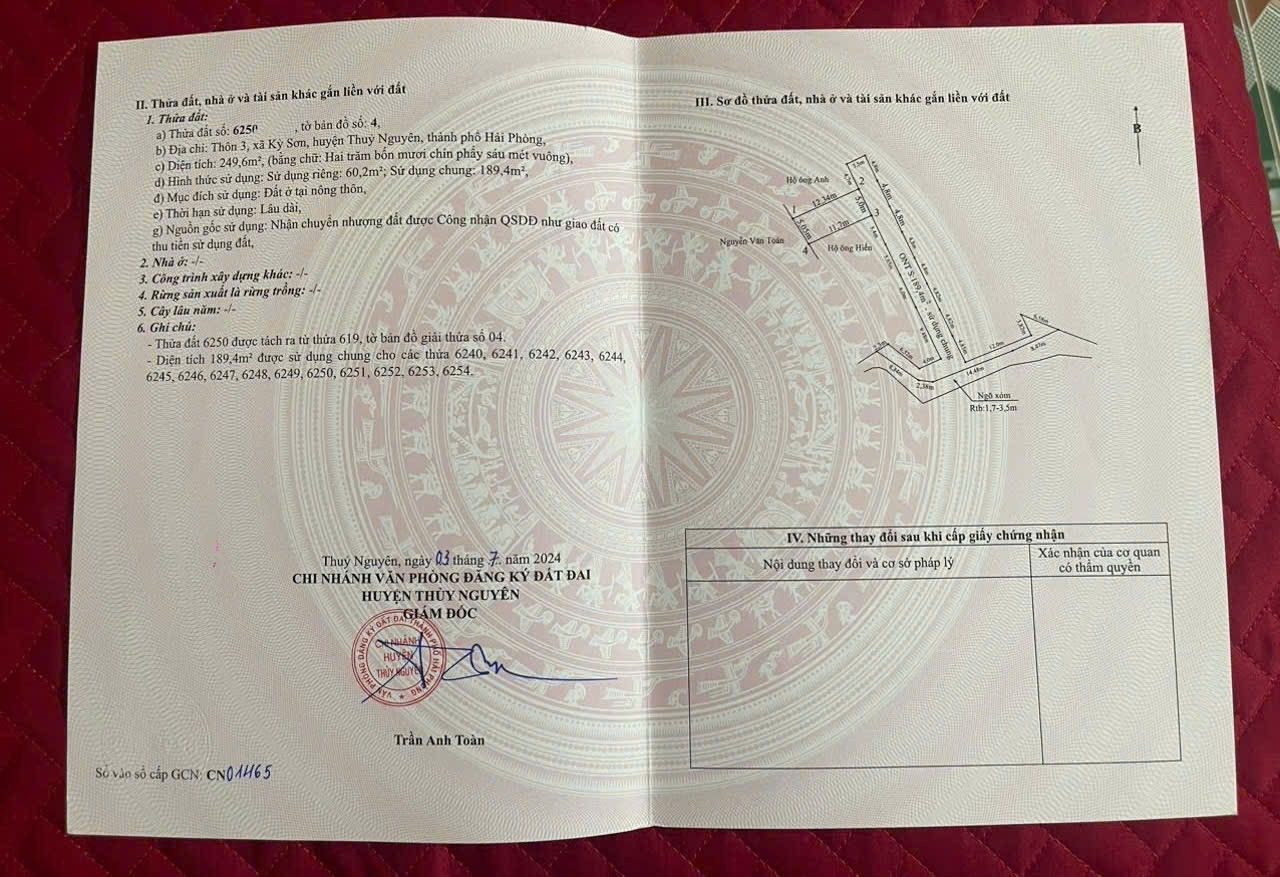 II. Thửa đất, nhà ở và tài sản khác gắn liền với đất
1. Thửa đất:
a) Thửa đất số: 6250 , tờ bản đồ số: 4,
b) Địa chỉ: Thôn 3, xã Kỳ Sơn, huyện Thuỷ Nguyên, thành phố Hải Phòng,
c) Diện tích: 249,6m², (bằng chữ: Hai trăm bốn mươi chín phẩy sáu mét vuông),
d) Hình thức sử dụng: Sử dụng riêng: 60,2m²; Sử dụng chung: 189,4m²,
đ) Mục đích sử dụng: Đất ở tại nông thôn,
e) Thời hạn sử dụng: Lâu dài,
g) Nguồn gốc sử dụng: Nhận chuyển nhượng đất được Công nhận QSDĐ như giao đất có
thu tiền sử dụng đất,
2. Nhà ở: -/-
3. Công trình xây dựng khác: -/-
4. Rừng sản xuất là rừng trồng: -/-
5. Cây lâu năm: -/-
6. Ghi chú:
- Thửa đất 6250 được tách ra từ thửa 619, tờ bản đồ giải thửa số 04.
- Diện tích 189,4m² được sử dụng chung cho các thửa 6240, 6241, 6242, 6243, 6244,
6245, 6246, 6247, 6248, 6249, 6250, 6251, 6252, 6253, 6254.
Thuỷ Nguyên, ngày 03 tháng 7. năm 2024
CHI NHÁNH VĂN PHÒNG ĐĂNG KÝ ĐẤT ĐAI
HUYỆN THỦY NGUYÊN
GIÁM ĐỐC
VĂN PHÒNG ĐĂNG KÝ ĐẤT ĐAI THÀNH PHỐ HẢI PHÒNG
CHI NHÁNH
HUYỆN
THỦY NGUYÊN
Trần Anh Toàn
Số vào sổ cấp GCN: CN01465
III. Sơ đồ thửa đất, nhà ở và tài sản khác gắn liền với đất
B
Hộ ông Anh
2
1
12.34m
5,0m
4,8m
4,8m
3
5,05m
11.2m
Nguyễn Văn Toàn
4
Hộ ông Hiển
ONT S:189,4m² - sử dụng chung
12,9m
8,87m
14,48m
2,38m
Ngõ xóm
Rtb:1,7-3,5m
IV. Những thay đổi sau khi cấp giấy chứng nhận
Nội dung thay đổi và cơ sở pháp lý
Xác nhận của cơ quan
có thẩm quyền